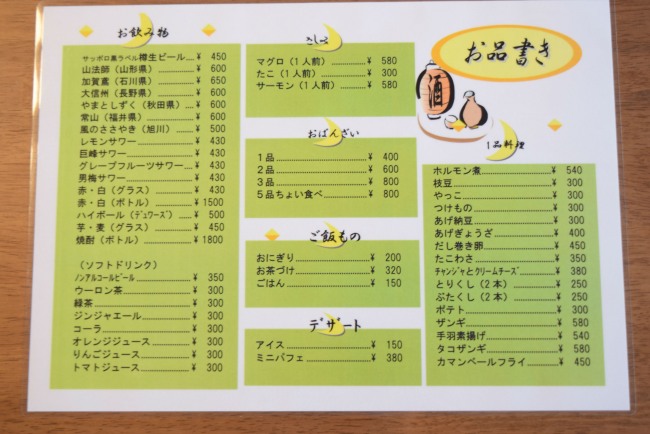 お飲み物
サッポロ黒ラベル樽生ビール....¥ 450
山法師（山形県）..............¥ 600
加賀鳶（石川県）..............¥ 650
大信州（長野県）..............¥ 600
やまとしずく（秋田県）...¥ 600
常山（福井県）................¥ 600
風のささやき（旭川）......¥ 500
レモンサワー..................¥ 430
巨峰サワー....................¥ 430
グレープフルーツサワー....¥ 430
男梅サワー....................¥ 430
赤・白（グラス）............¥ 430
赤・白（ボトル）............¥ 1500
ハイボール（ﾃﾞｭﾜｰｽﾞ）......¥ 500
芋・麦（グラス）............¥ 450
焼酎（ボトル）................¥ 1800
（ソフトドリンク）
ノンアルコールビール..................¥ 350
ウーロン茶....................¥ 300
緑茶..........................¥ 300
ジンジャエール................¥ 300
コーラ........................¥ 300
オレンジジュース..............¥ 300
りんごジュース................¥ 300
トマトジュース................¥ 300
さしみ
マグロ（１人前）............¥ 580
たこ（１人前）................¥ 300
サーモン（１人前）..........¥ 580
おばんざい
１品..........................¥ 400
２品..........................¥ 600
３品..........................¥ 800
５品ちょい食べ................¥ 800
ご飯もの
おにぎり......................¥ 200
お茶づけ......................¥ 320
ごはん........................¥ 150
デザート
アイス........................¥ 150
ミニパフェ....................¥ 380
お品書き
酒
１品料理
ホルモン煮....................¥ 540
枝豆..........................¥ 300
やっこ........................¥ 300
つけもの......................¥ 300
あげ納豆......................¥ 300
あげぎょうざ..................¥ 400
だし巻き卵....................¥ 450
たこわさ......................¥ 350
チャンジャとクリームチーズ................¥ 380
とりくし（２本）............¥ 250
ぶたくし（２本）............¥ 250
ポテト........................¥ 300
ザンギ........................¥ 580
手羽素揚げ....................¥ 540
タコザンギ....................¥ 580
カマンベールフライ............¥ 450